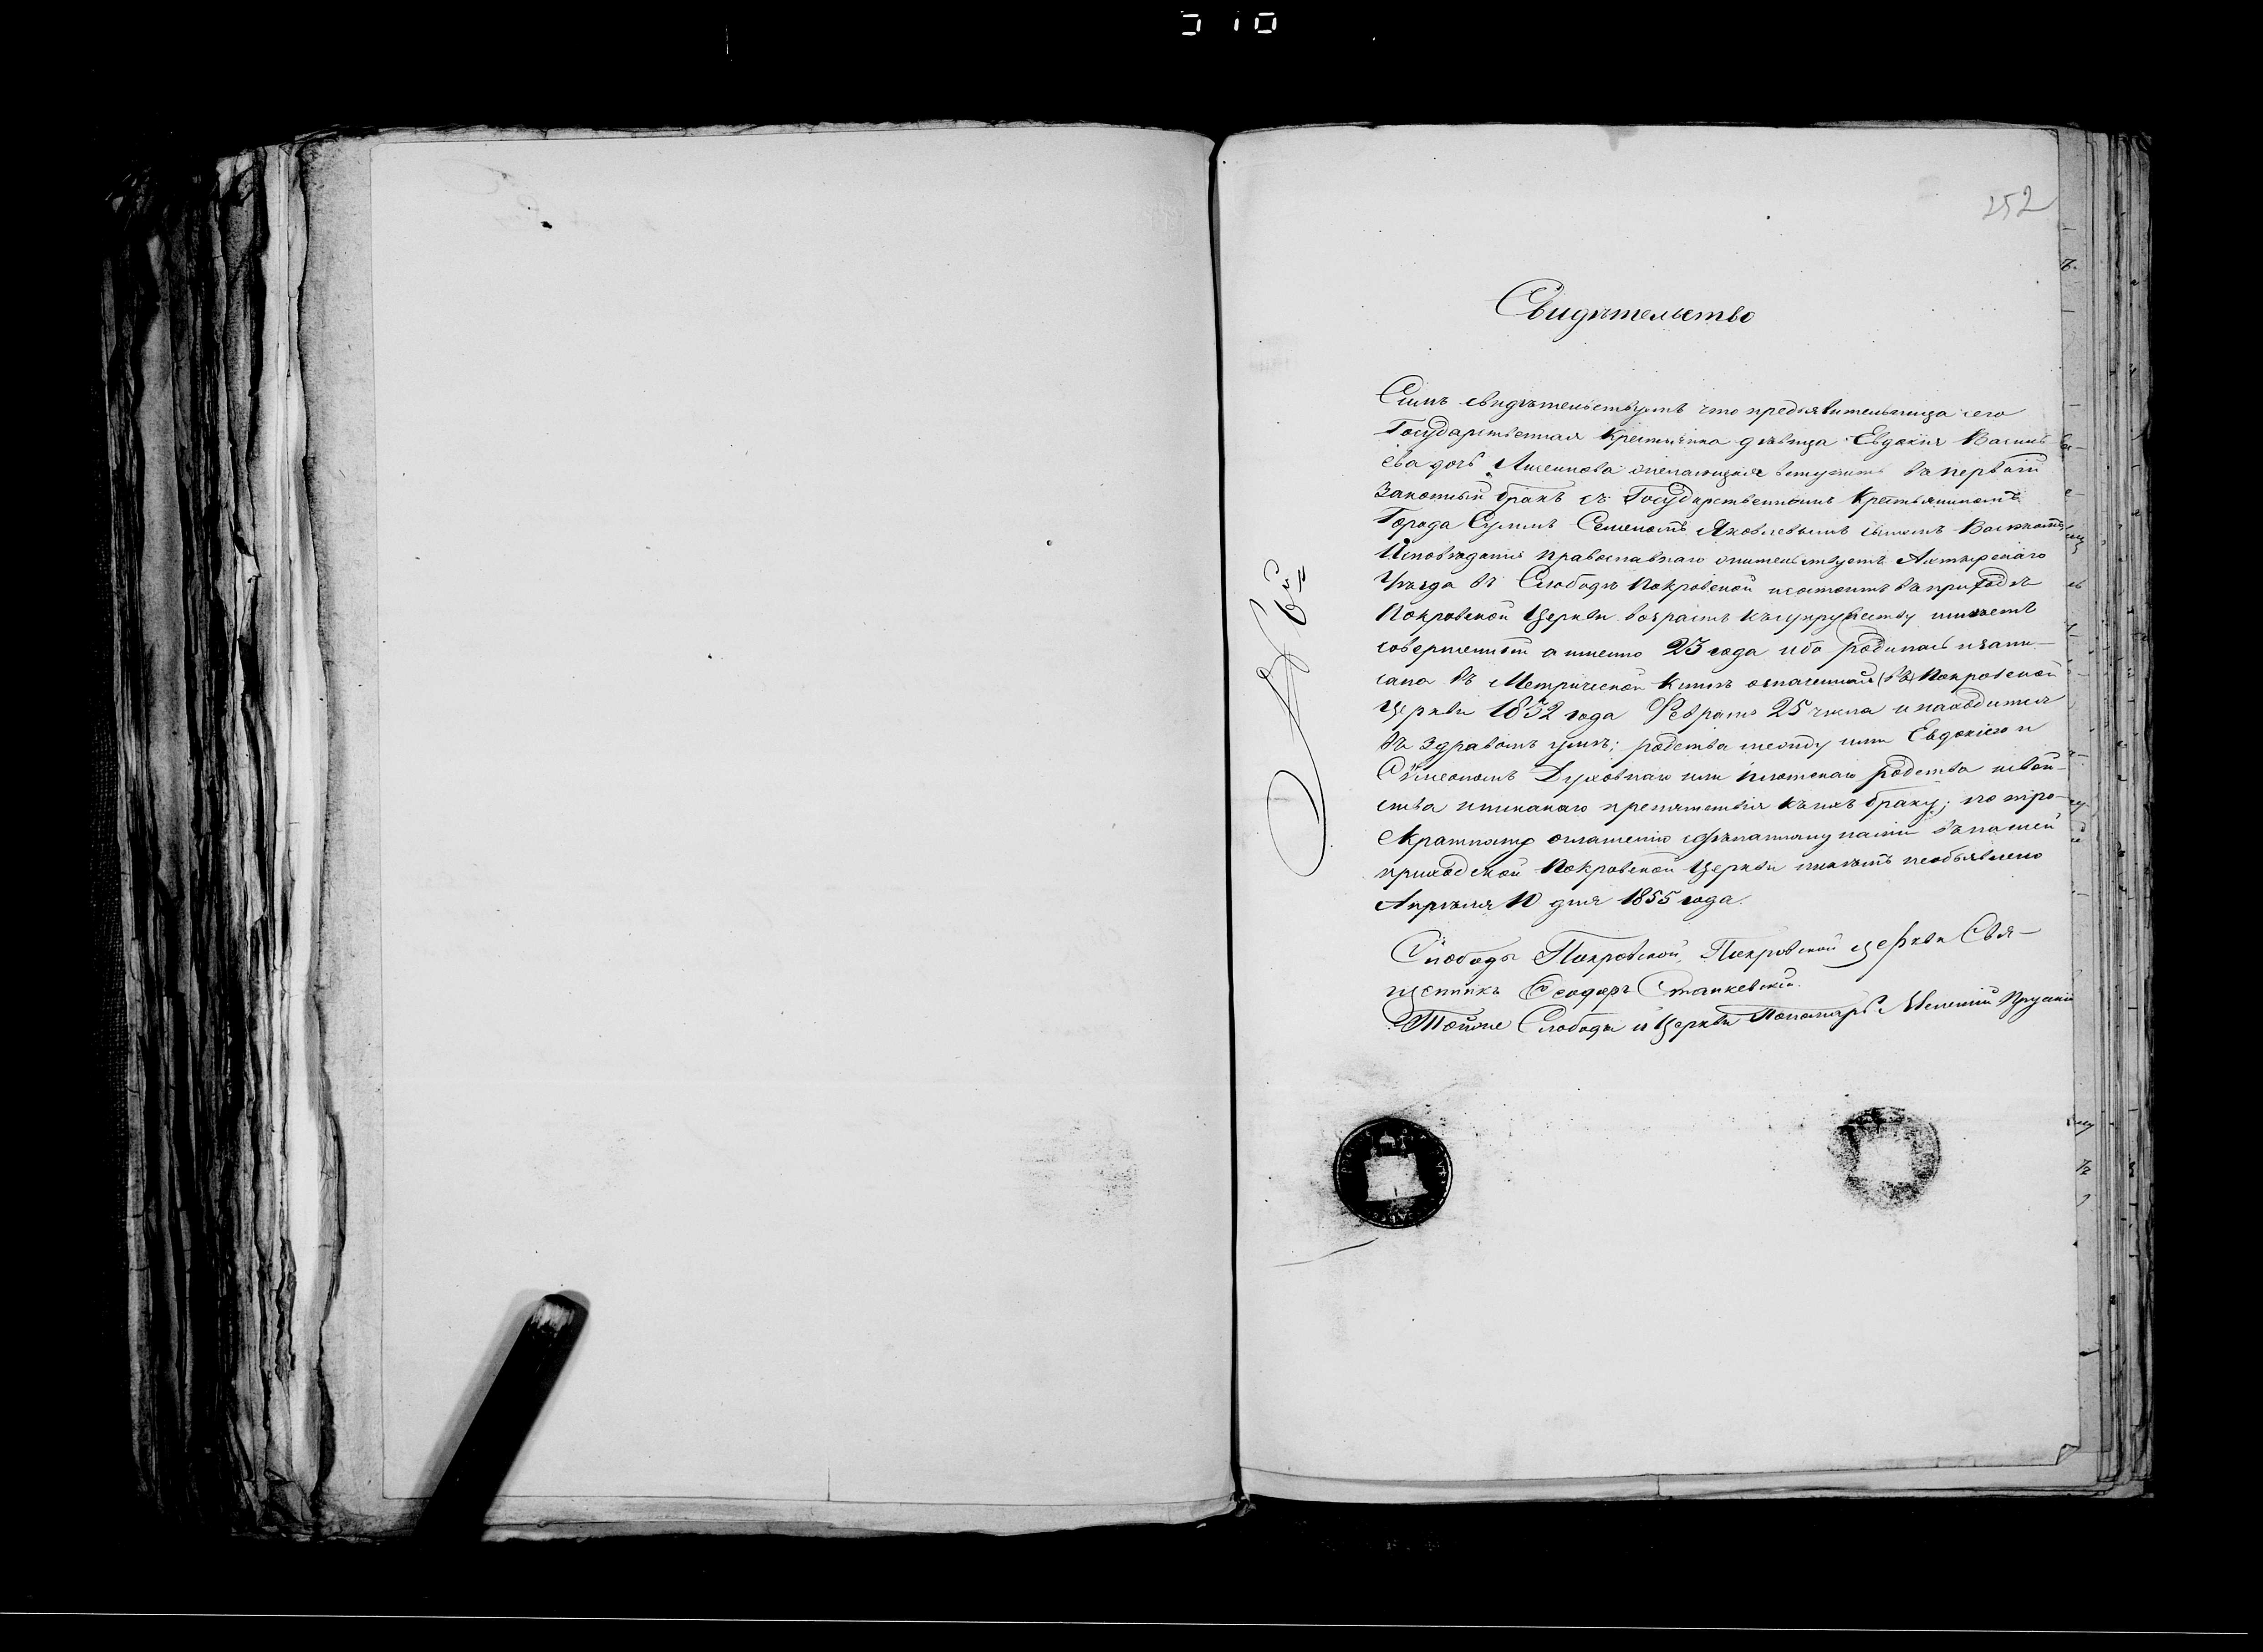 252
Свидѣтельство
Симъ свидѣтельствуемъ что предъявительница сего
Государственная Крестьянка дѣвица Евдокія Василь
ева дочь желающая вступить въ первый
Законный бракъ съ Государственнымъ Крестьяниномъ
Города Суммъ Семеномъ Яковлевымъ сыномъ
Исповѣданія православнаго жительствуетъ Ахтырскаго
Уѣзда въ Слободѣ Покровской и состоитъ въ приходѣ
Покровской Церкви возрастъ къ супружеству имѣетъ
совершенный а именно 23 года ибо родилась и запи-
сана въ Метрической Книгѣ означенной (въ) Покровской
Церкви 1832 года Февраля 25 числа и находится
въ здравомъ умѣ; родства между ими Евдокіею и
Сѵмеономъ Духовнаго или плотскаго родства и свой-
ства никакаго препятствія къ ихъ браку; по тро-
екратному оглашенію сдѣланному нами въ нашей
приходской Покровской Церкви никѣмъ необъявлено
Апрѣля 10 дня 1855 года.
Слободы Покровской, Покровской церкви Свя-
щенникъ Ѳеодоръ Станкевскій.
Тойже Слободы и Церкви Пономарь
№ 63